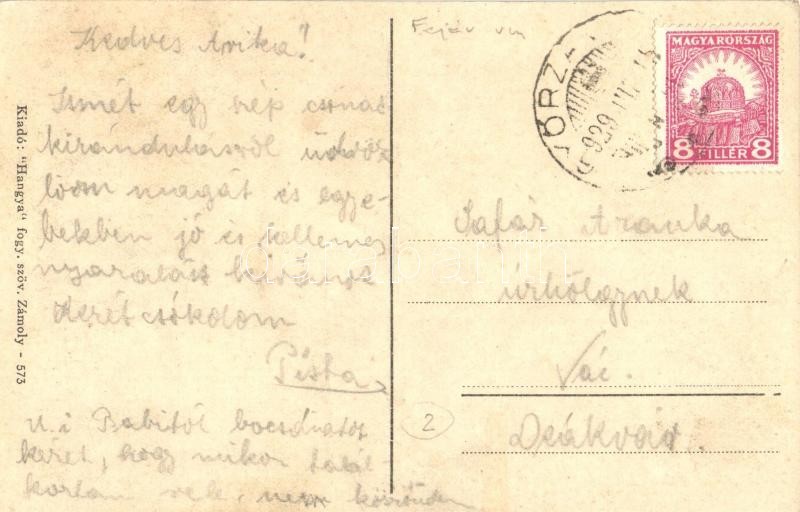 Kedves Arika!
Ismét egy szép csónak
kirándulásról üdvöz
löm magát és egye-
bekben jó és kellemes
nyaralást kivánok
Kezét csókolom
Pista
u. i. Babitól bocsánatot
kérek, hogy mikor talál-
koztam vele, nem köszöntem
Kiadó: "Hangya" fogy. szöv. Zámoly - 573
Fejér vm
MAGYARORSZÁG
8 FILLÉR 8
929
Safár Aranka
úrhölgynek
Vác.
Deákvár.
2
darabanth